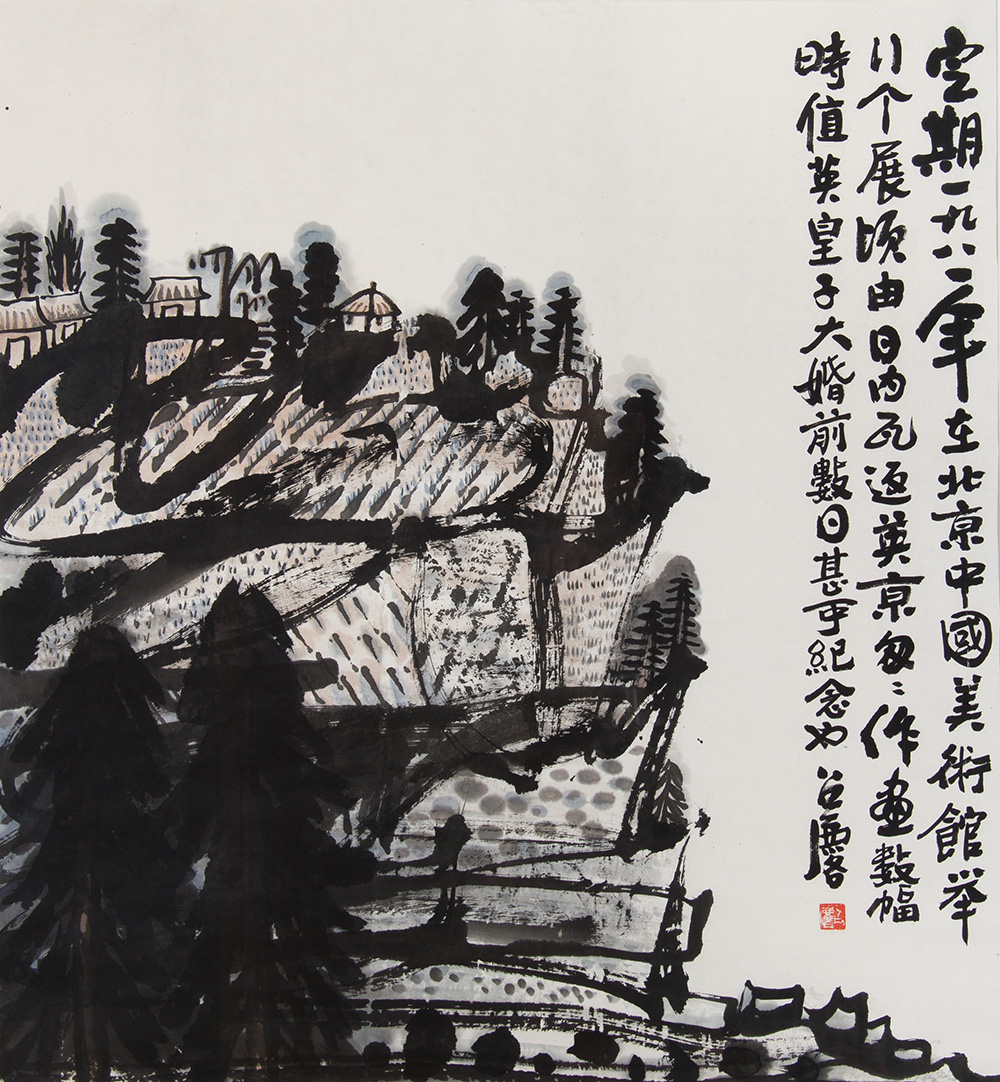 定期一九八一年在北京中國美術館举
行个展頃由日内瓦返英京匆々作画数幅
時值英皇子大婚前數日甚可紀念也 召麐